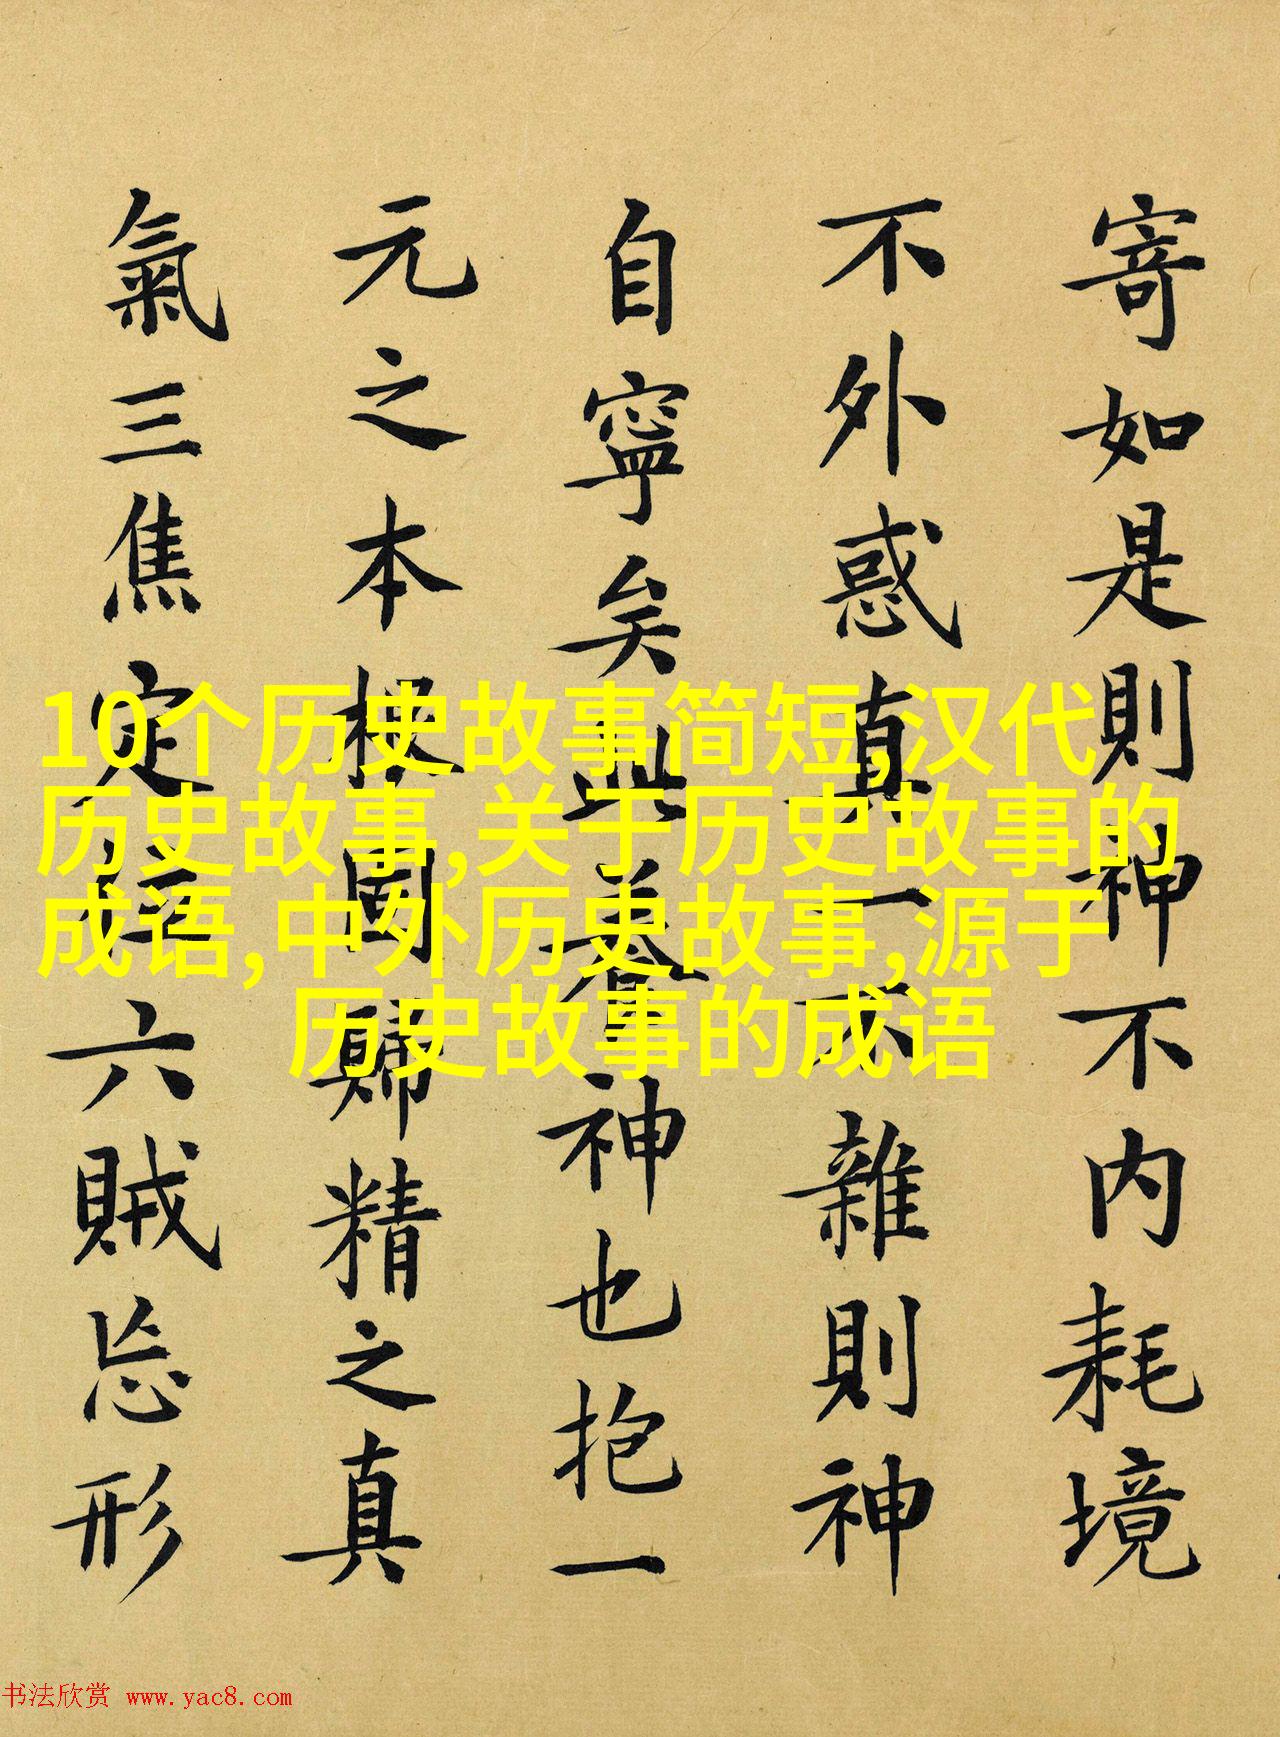 寄如是則神不内耗境
不外惑真一不雜則神
自寧矣此養神也抱一
元之本根固歸精之真
氣三焦定位六賊忘形
10个历史故事简短,汉代
历史故事,关于历史故事的
成语,中外历史故事,源于
历史故事的成语
书法欣赏 www.yac8.com